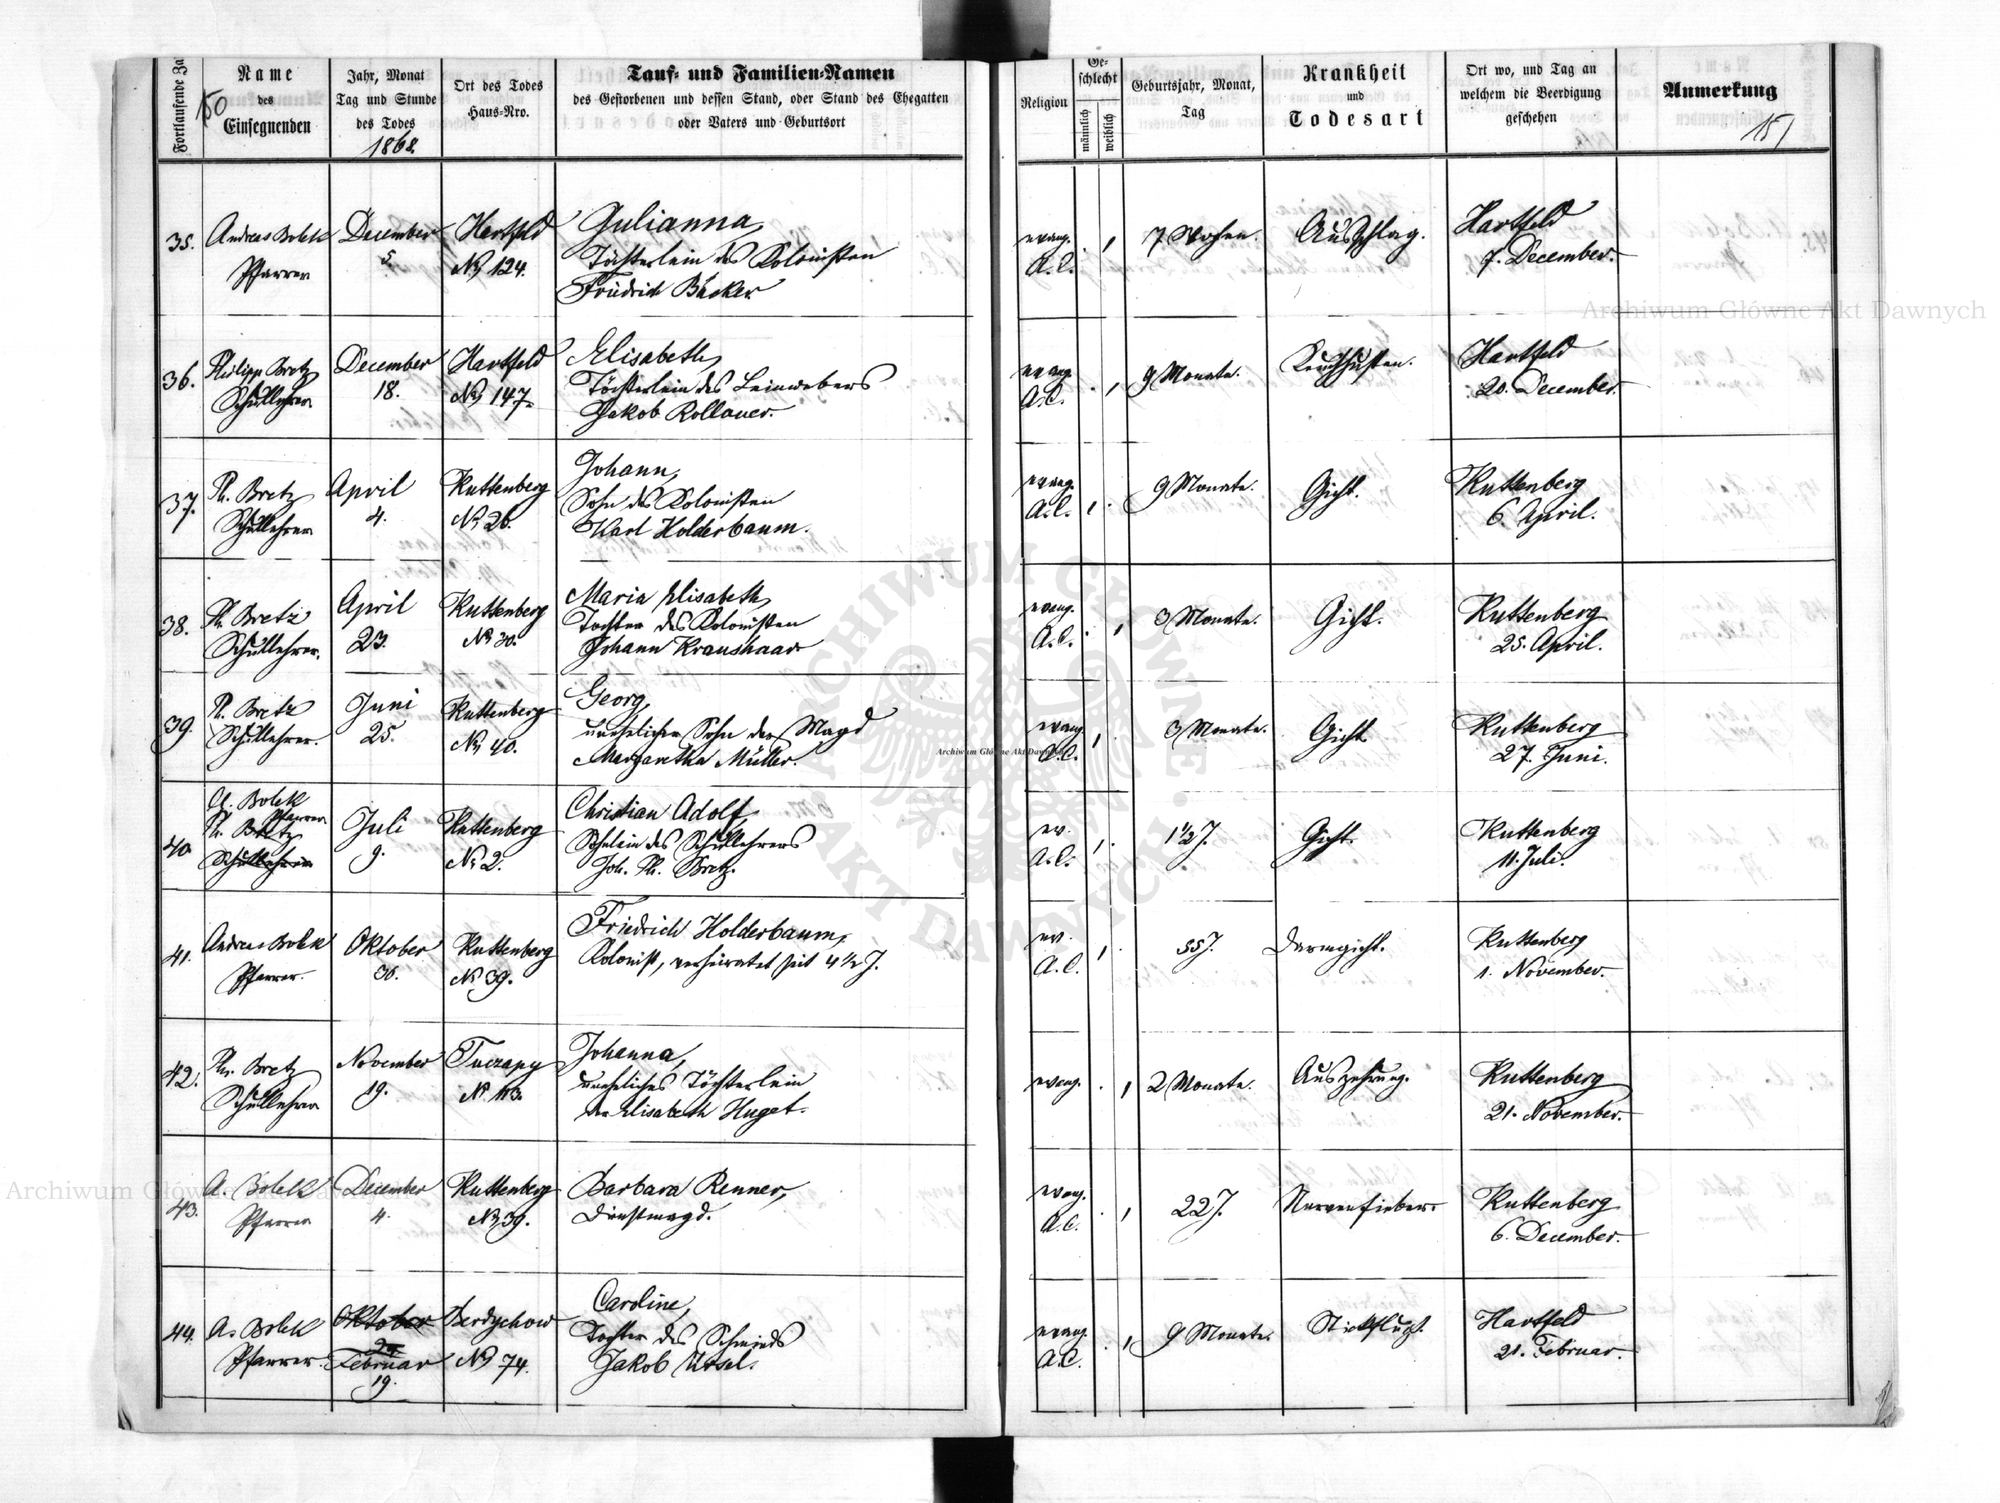 Fortlaufende Za
150
Name
des
Einsegnenden
Jahr, Monat
Tag und Stunde
des Todes
1868.
Ort des Todes
Haus-Nro.
Tauf- und Familien-Namen
des Gestorbenen und dessen Stand, oder Stand des Ehegatten
oder Vaters und Geburtsort
Religion
Ge-
schlecht
männlich
weiblich
Geburtsjahr, Monat,
Tag
Krankheit
und
Todesart
Ort wo, und Tag an
welchem die Beerdigung
geschehen
Anmerkung
151
35.
Andreas Bolek
Pfarrer
December
5.
Hartfeld
No 124.
Julianna,
Töchterlein des Kolonisten
Friedrich Bäcker
evang.
A.C.
,
7 Wochen.
Ausschlag.
Hartfeld
7. December.
36.
Philipp Bretz
Schullehrer
December
18.
Hartfeld
No 147.
Elisabeth,
Töchterlein des Leinwebers
Jakob Rollauer.
evang.
A.C.
,
9 Monate.
Keuchhusten.
Hartfeld
20. December.
37.
Ph. Bretz
Schullehrer
April
4.
Ruttenberg
No 26.
Johann,
Sohn des Kolonisten
Karl Holderbaum.
evang.
A.C.
,
9 Monate.
Gicht.
Ruttenberg
6. April.
38.
Ph. Bretz
Schullehrer.
April
23.
Ruttenberg
No 30.
Maria Elisabeth,
Tochter des Kolonisten
Johann Kraushaar
evang.
A.C.
,
3 Monate.
Gicht.
Ruttenberg
25. April.
39.
Ph. Bretz
Schullehrer.
Juni
25.
Ruttenberg
No 40.
Georg,
unehelicher Sohn der Magd
Margaretha Müller.
evang.
A.C.
,
3 Monate.
Gicht
Ruttenberg
27. Juni.
40
A. Bolek
Pfarrer.
Ph. Bretz
Schullehrer
Juli
9.
Ruttenberg
No 2.
Christian Adolf,
Söhnlein des Schullehrers
Joh. Ph. Bretz.
ev.
A.C.
,
1 1/2 J.
Gicht.
Ruttenberg
11. Juli.
41.
Andreas Bolek
Pfarrer.
Oktober
30.
Ruttenberg
No 39.
Friedrich Holderbaum,
Kolonist, verheiratet seit 4 1/2 J.
ev.
A.C.
,
55 J.
Darmgicht.
Ruttenberg
1. November.
42.
Ph. Bretz
Schullehrer
November
19.
Tuczapy
No 113.
Johanna,
uneheliches Töchterlein
der Elisabeth Huget.
evang.
,
2 Monate.
Auszehrung.
Ruttenberg
21. November.
43.
A. Bolek
Pfarrer
December
4.
Ruttenberg
No 39.
Barbara Renner,
Dienstmagd.
evang.
A.C.
,
22 J.
Nervenfieber.
Ruttenberg
6. December.
44.
A. Bolek
Pfarrer.
Oktober
Februar
19.
Berdychow
No 74.
Caroline,
Tochter des Schmieds
Jakob Utsel.
evang.
A.C.
,
9 Monate.
Stickfluß.
Hartfeld
21. Februar.
Archiwum Główne Akt Dawnych
Archiwum Główne Akt Dawnych
Archiwum Główne Akt Dawnych
ARCHIWUM GŁÓWNE
AKT DAWNYCH